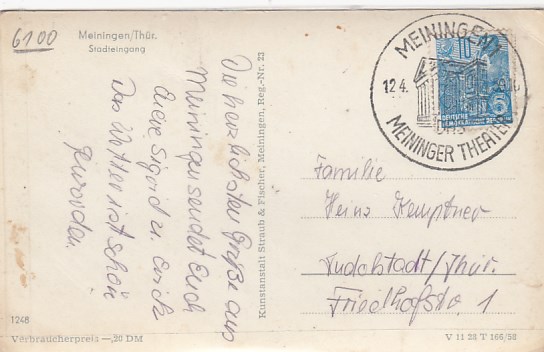 6100
Meiningen/Thür.
Stadteingang
Die herzlichsten Grüße aus
Meiningen sendet Euch
Eure Sigrid u. Erich
Das Wetter ist schön
geworden.
Kunstanstalt Straub & Fischer, Meiningen, Reg.-Nr. 23
MEININGEN 1
12.4.
DAS
MEININGER THEATER
10
DEUTSCHE
Familie
Heinz Kemptner
Rudolstadt/Thür.
Friedhofstr. 1
1248
Verbraucherpreis —,20 DM
V 11 28 T 166/58